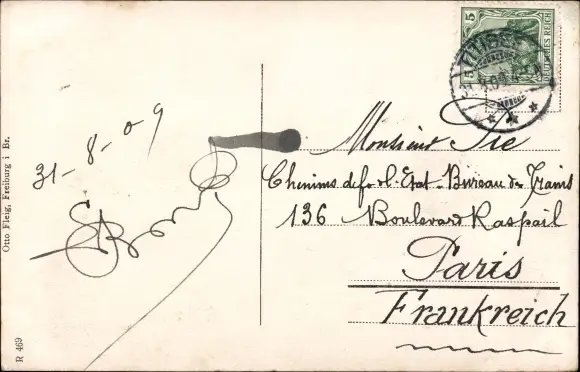 5 5
DEUTSCHES REICH
31-8-09
Monsieur Pie
Chemins de fer de l'Etat - Bureau des Trains
136 Boulevard Raspail
Paris
Frankreich
Otto Fleig, Freiburg i Br.
R 469